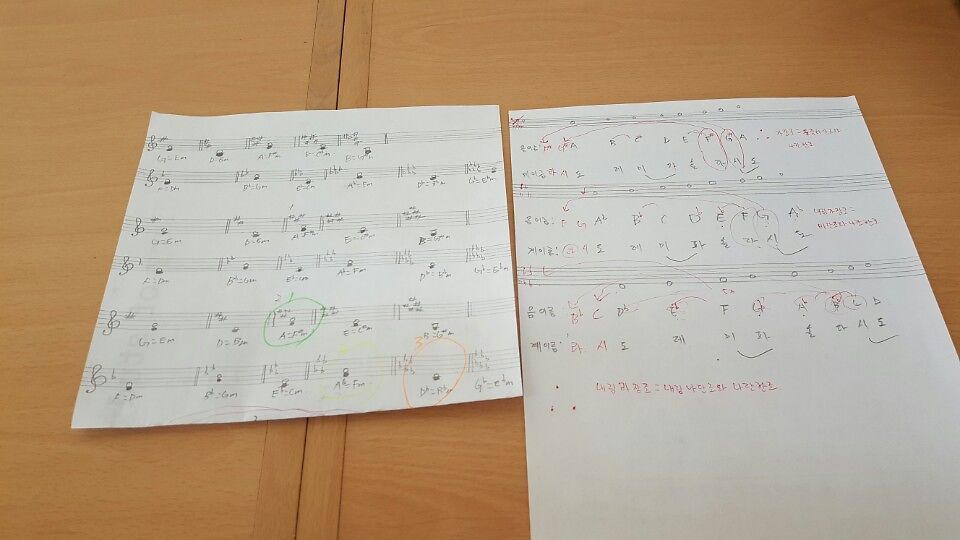 G=Em D=Bm A=F#m E=C#m B=G#m
F=Dm B♭=Gm E♭=Cm A♭=Fm D♭=B♭m G♭=E♭m
1
G=Em D=Bm A=F#m E=C#m B=G#m
F=Dm B♭=Gm E♭=Cm A♭=Fm D♭=B♭m G♭=E♭m
2 1
G=Em D=Bm A=F#m E=C#m B=G#m
3
F=Dm B♭=Gm E♭=Cm A♭=Fm D♭=B♭m G♭=e♭m
음이름: F# G# A B C# D E F# G# A
계이름: 라 시 도 레 미 파 솔 라 시 도
음이름: F G A♭ B♭ C D♭ E♭ F G A♭
계이름: 라 시 도 레 미 파 솔 라 시 도
음이름: B♭ C D♭ E♭ F G♭ A♭ B♭ C D
계이름: 라 시 도 레 미 파 솔 라 시 도
내림라장조=내림나단조와 나란한조